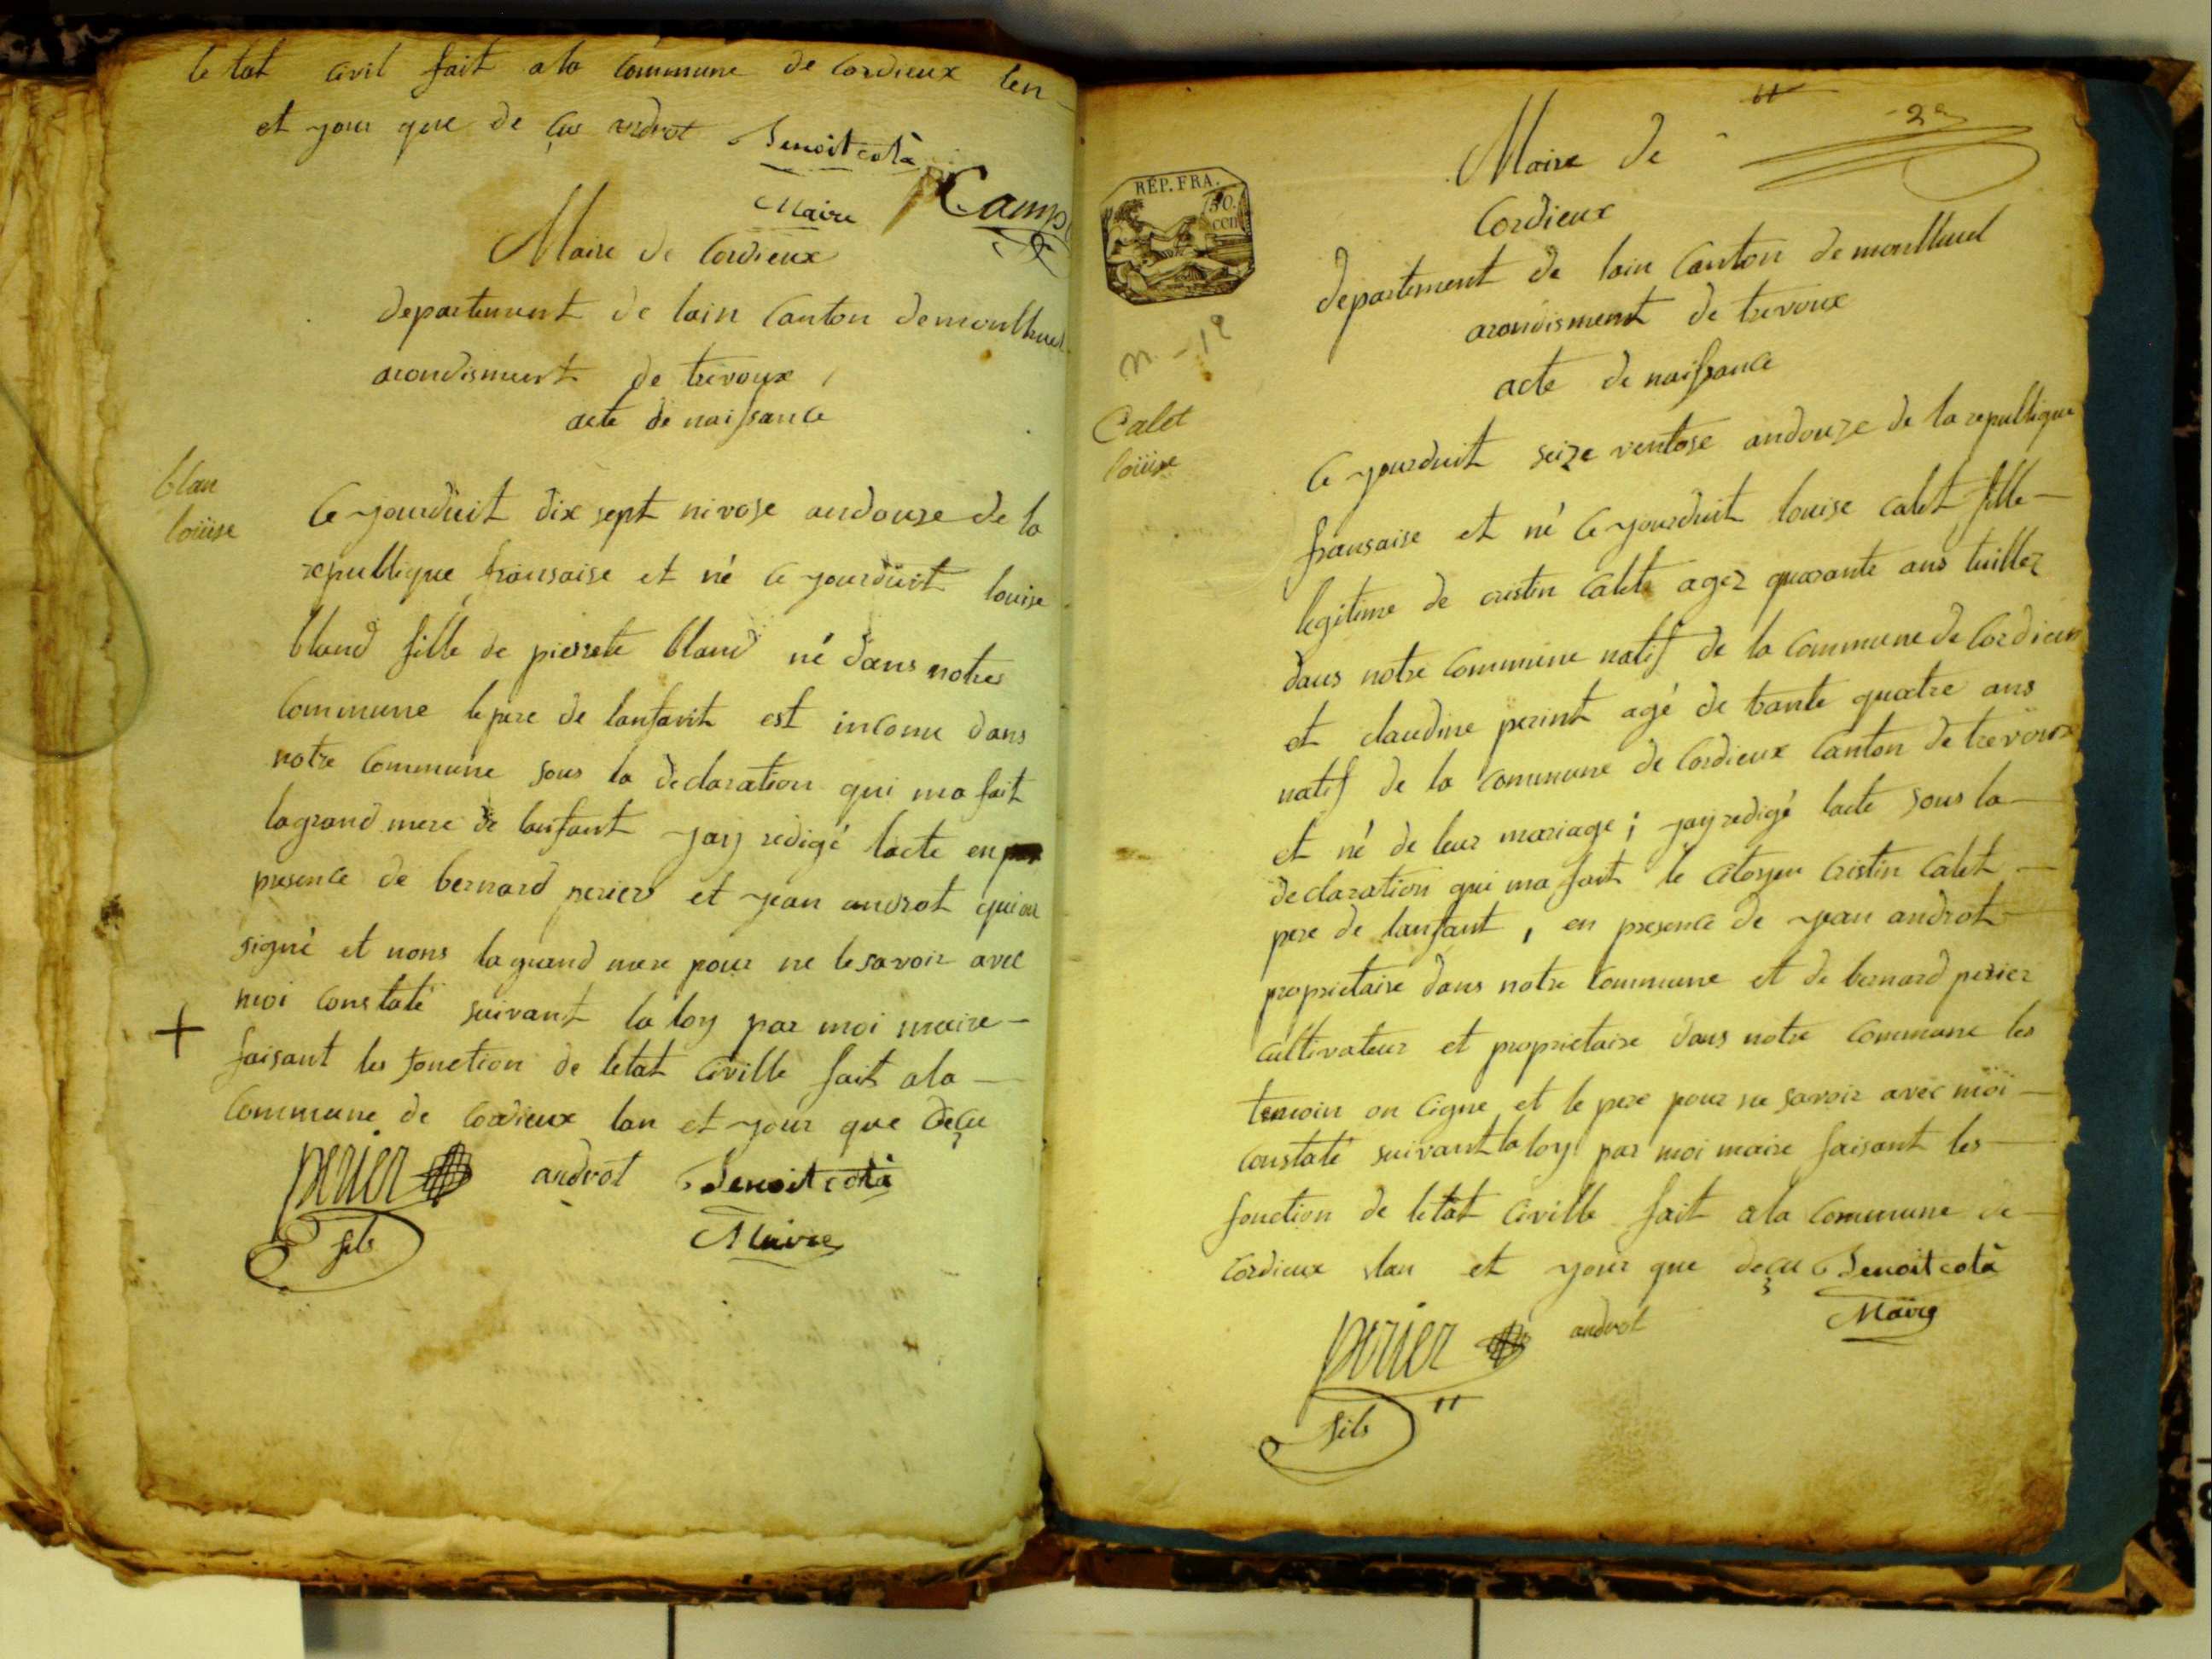 le tat civil fait ala Commune de Cordieux len
et your que de çu androt Benoit cotà
Maire
Camp
Maire de Cordieux
departement de lain Canton demontluel
arondisment de trevoux
acte de naissance
blan
louise
Ce yourduit dix sept nivose andouze de la
republique fransaise et né ce yourduit louise
bland fille de pierrete bland né dans notre
Commune le pere de lanfant est inconu dans
notre Commune sous la declaration qui ma fait
lagrand mere de lanfant yay redigé lacte en
presence de bernard perier et yean androt qui on
signé et nons la grand mere pour ne le savoir avec
moi constaté suivant la loy par moi maire
faisant les fonction de letat civille fait ala
Commune de cordieux lan et your que deçu
perier androt Benoit cotà
fils Maire
2e
Maire de
Cordieux
REP. FRA.
departement de lain Canton de montluel
arondisment de trevoux
acte de naissance
n - 12
Calet
louise
Ce yourduit seize ventose andouze de la republique
fransaise et né ce yourduit louise calet fille
legitime de cristin calet agez quarante ans tuillez
dans notre Commune natif de la Commune de Cordieux
et claudine perint agé de trante quatre ans
natif de la Commune de Cordieux Canton de trevoux
et né de leur mariage ; yay redigé lacte sous la
declaration qui ma fait le citoyen Cristin Calet
pere de lanfant , en presence de yean androt
proprietaire dans notre Commune et de bernard perier
cultivateur et proprietaire dans notre Commune les
temoin on cigne et le pere pour ne savoir avec moi
constaté suivant la loy par moi maire faisant les
fonction de letat civille fait ala Commune de
Cordieux lan et your que deçu Benoit cotà
perier androt Maire
fils